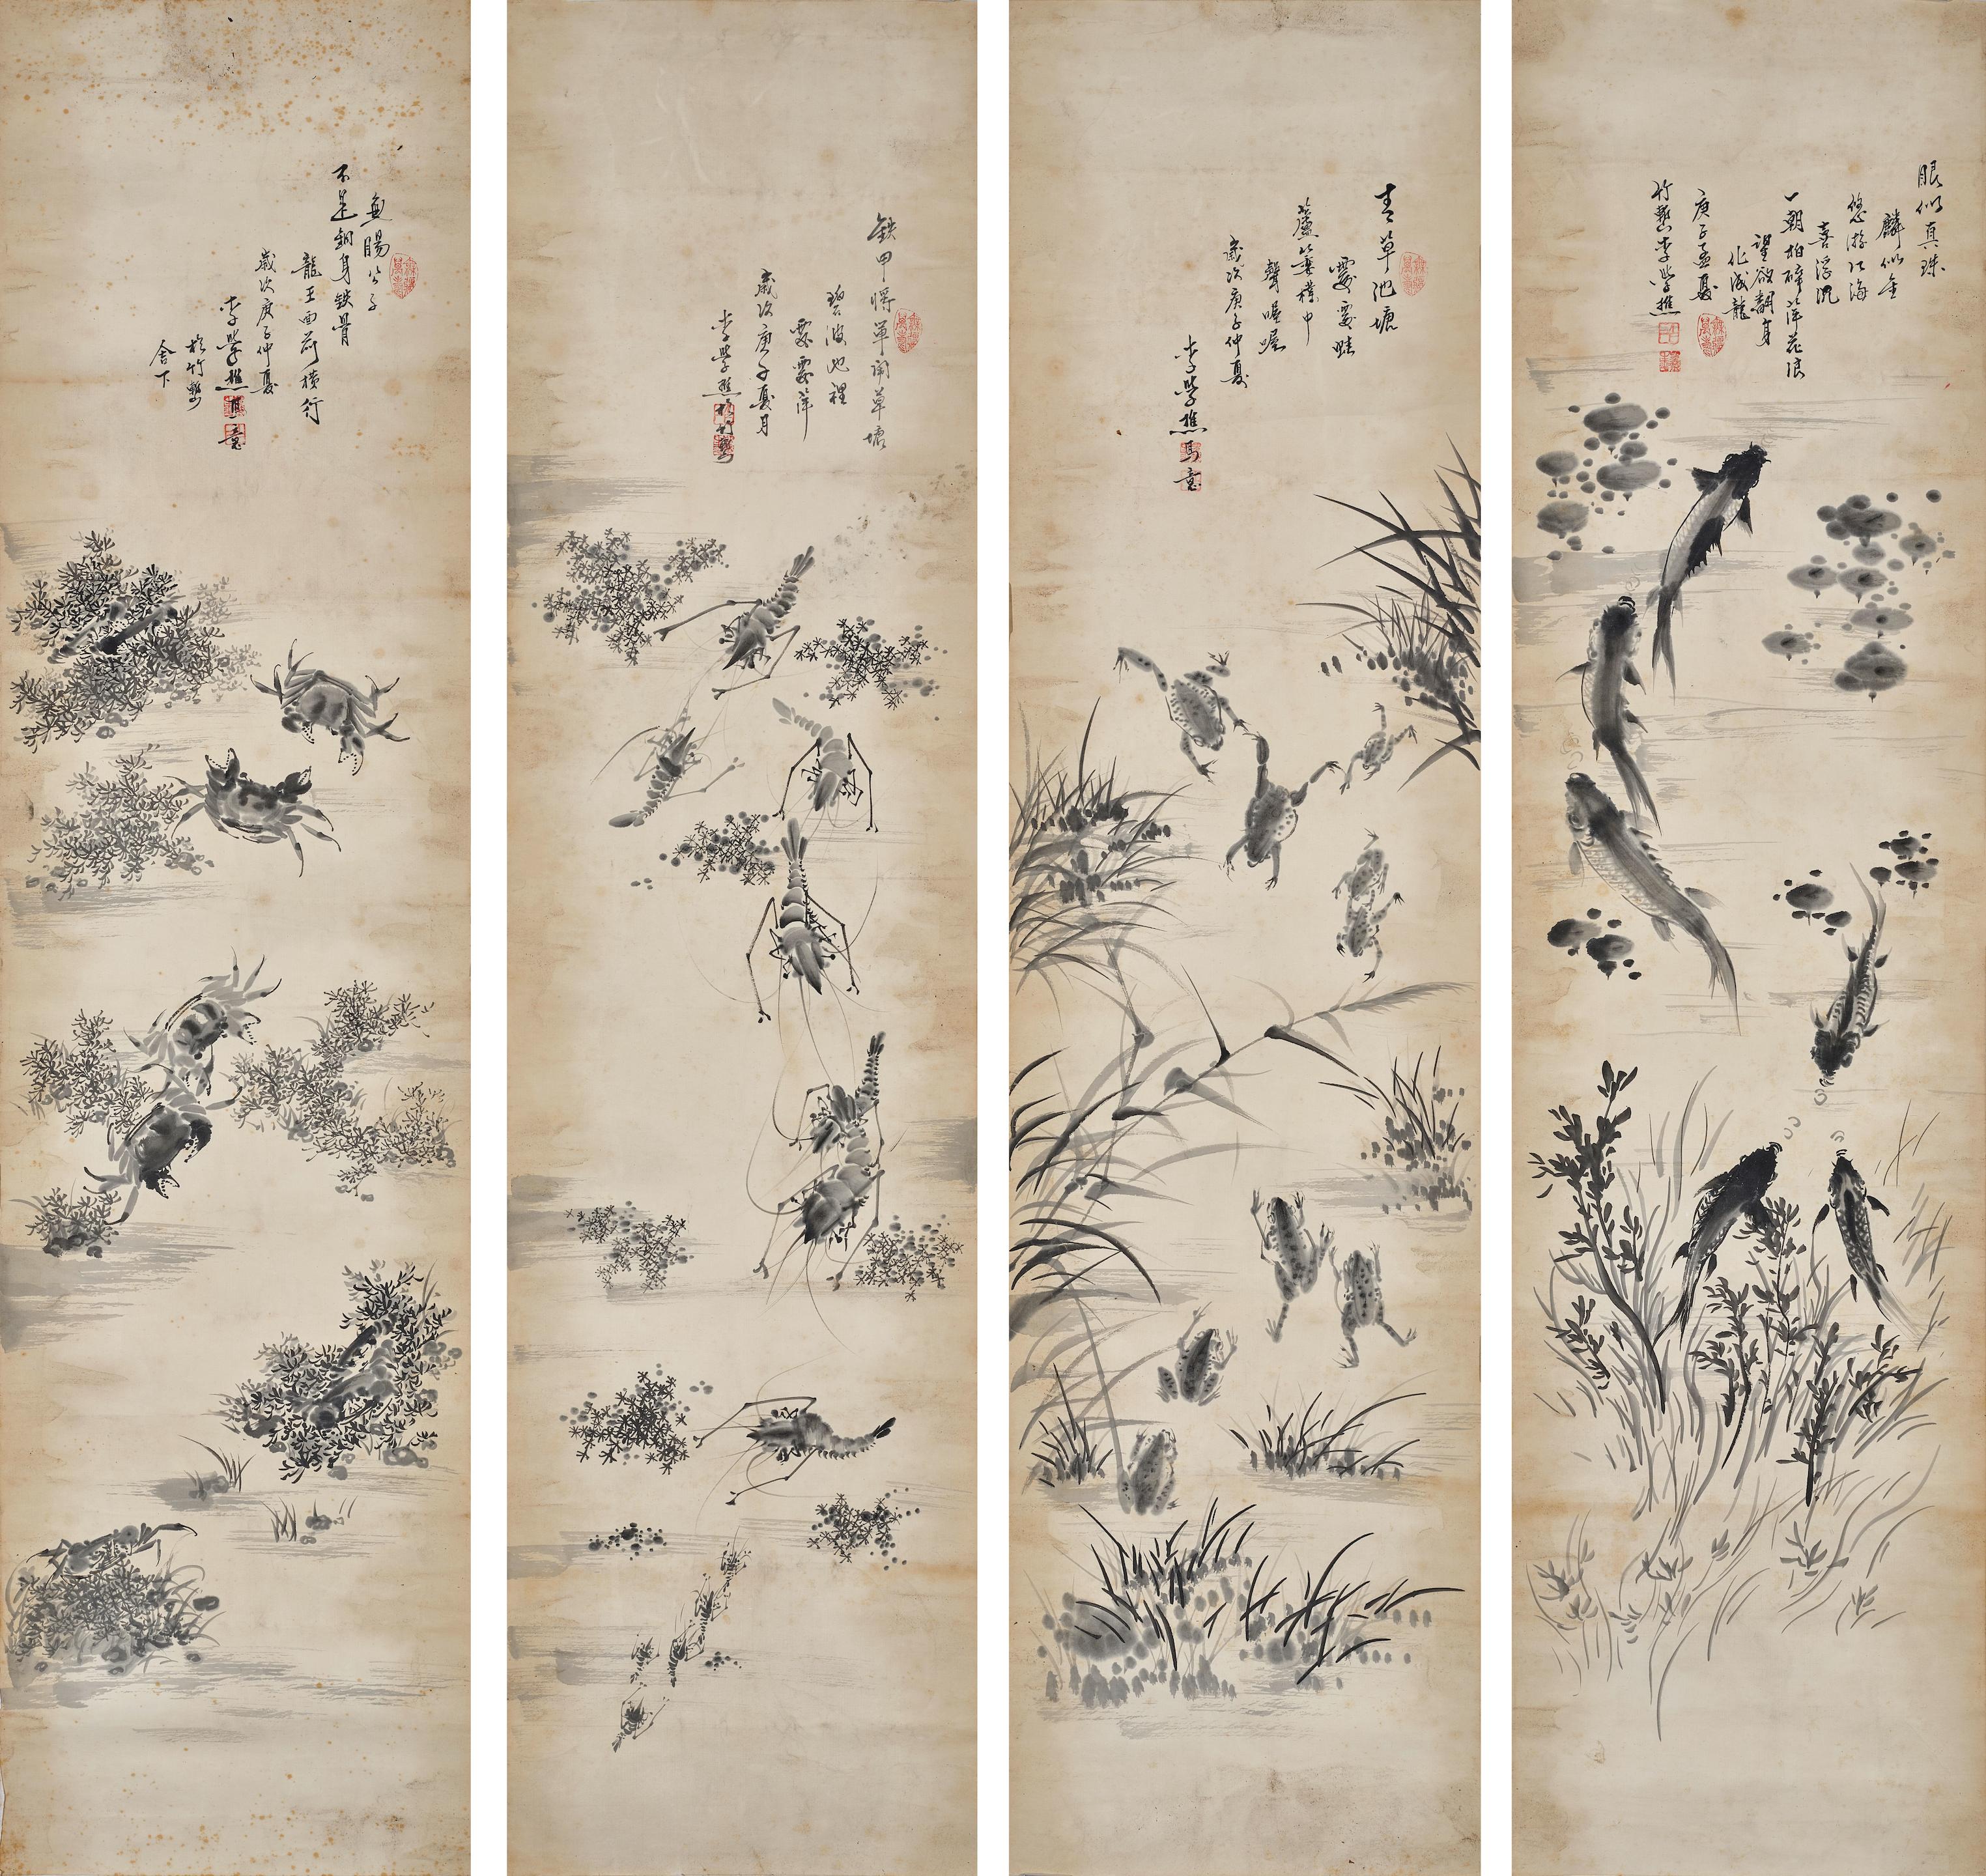 眼似真珠
麟似金
悠游江海
喜浮沉
一朝拍碎萍花浪
望欲翻身
化成龍
庚子孟夏
竹塹李學樵
青草池塘
處處蛙
蘆葦中
聲喔喔
歲次庚子仲夏
李學樵寫意
鉄甲將軍鬧草塘
碧波池裡
處處萍
歲次庚子夏月
李學樵於竹塹
無腸公子
不是銅身鉄骨
龍王面前橫行
歲次庚子仲夏
李學樵寫意
於竹塹
舍下